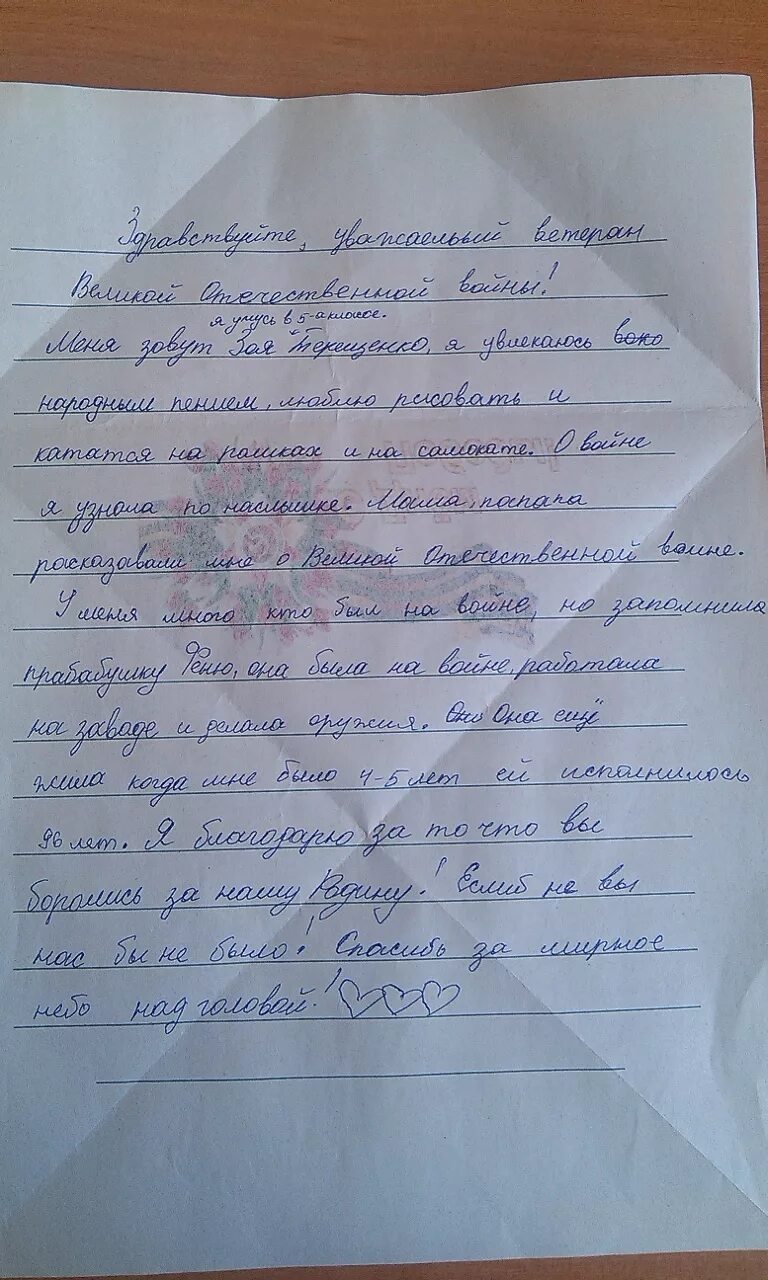 Здравствуйте, уважаельый ветеран
Великой Отечественной войны!
я учусь в 5-а классе.
Меня зовут Зоя Терещенко, я увлекаюсь воко
народным пением, люблю рисовать и
кататся на роликах и на самокате. О войне
я узнала по наслышке. Мама, папа
расказавали мне о Великой Отечественной воине.
У меня много кто был на войне, но запомнила
прабабушку Феню, она была на войне, работала
на заваде и делала оружия. Оно Она ещё
жила когда мне было 4-5 лет ей исполнилось
96 лет. Я благодарю за то что вы
боролись за нашу Родину! Еслиб не вы
нас бы не было! Спасибь за мирное
небо над головой!